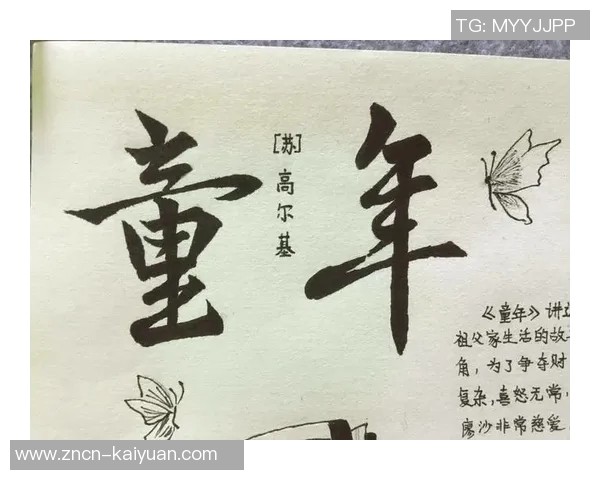 TG: MYYJJPP
童年
[苏]高尔基
《童年》讲
祖父家生活的故
角，为了争夺财
复杂，喜怒无常，
廖沙非常慈爱
www.zncn-kaiyuan.com